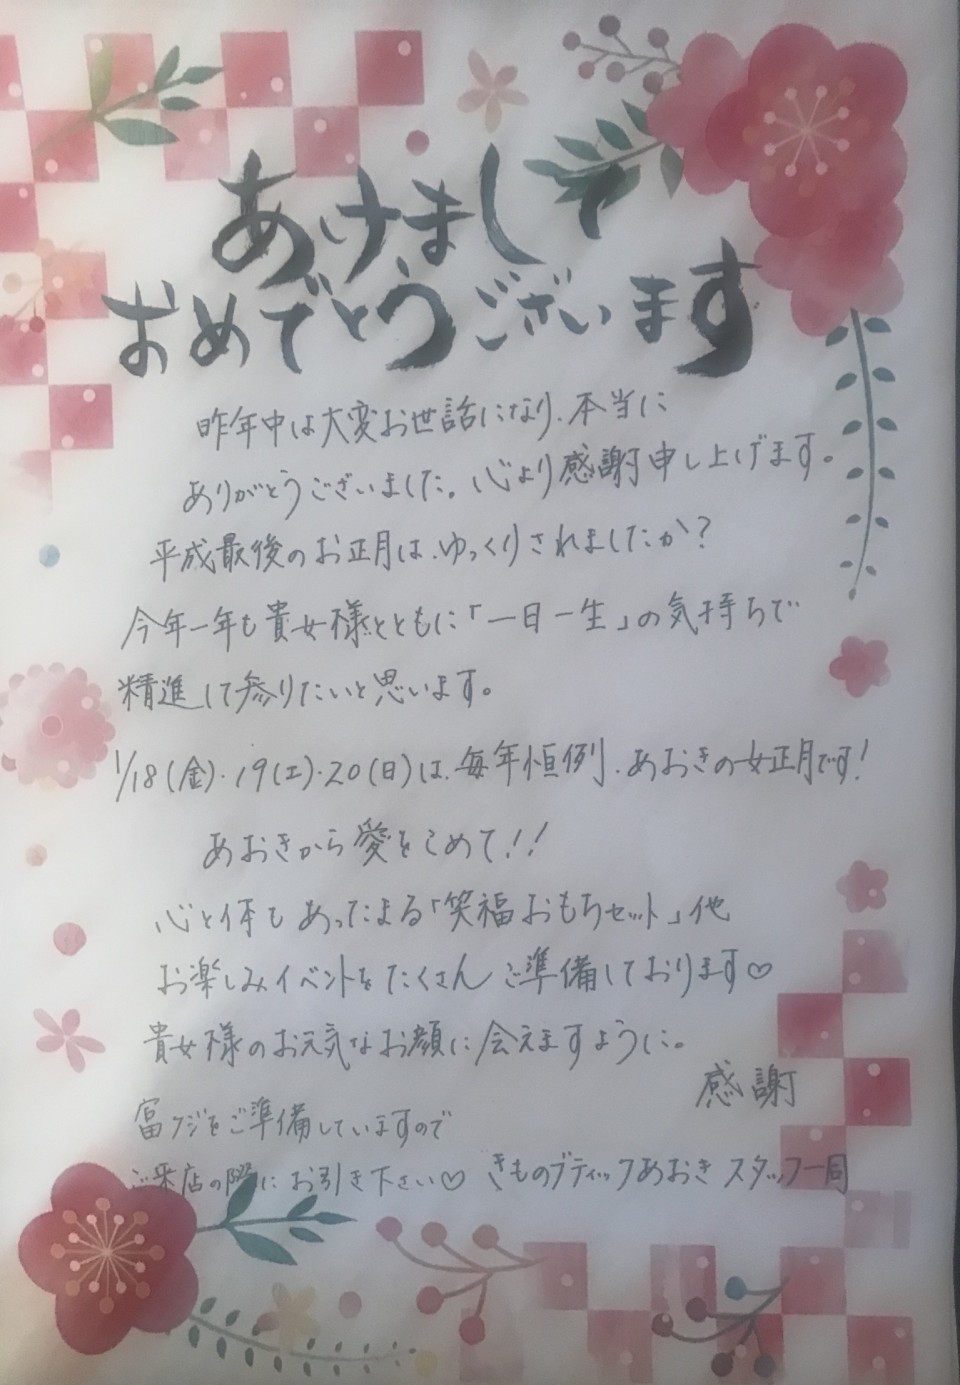 あけまして
おめでとうございます
昨年中は大変お世話になり、本当に
ありがとうございました。心より感謝申し上げます。
平成最後のお正月は、ゆっくりされましたか？
今年一年も貴女様とともに「一日一生」の気持ちで
精進して参りたいと思います。
1/18(金)・19(土)・20(日)は、毎年恒例、あおきの女正月です!
あおきから愛をこめて!!
心と体もあったまる「笑福おもちセット」他
お楽しみイベントをたくさんご準備しております♡
貴女様のお元気なお顔に会えますように。
感謝
富クジをご準備していますので
ご来店の際にお引き下さい♡
きものブティックあおき スタッフ一同